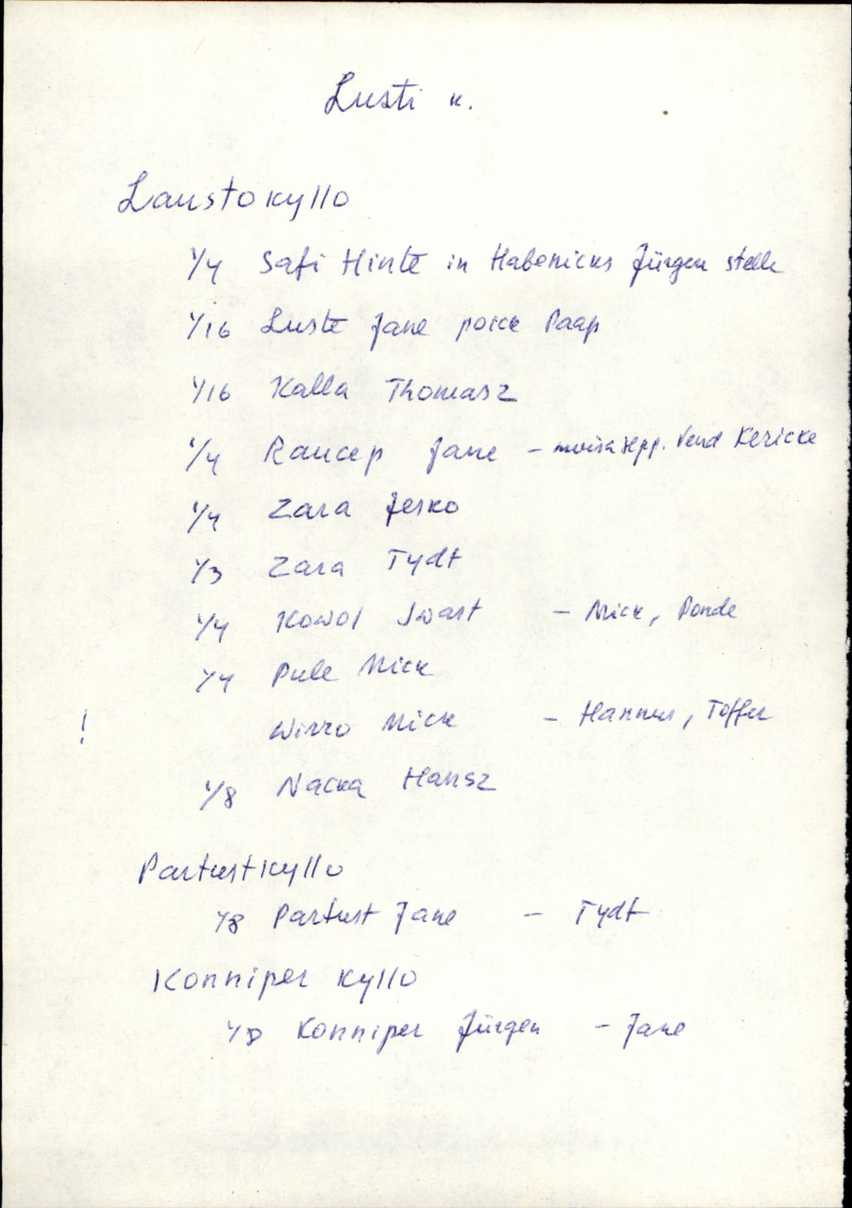 Lusti k.
Laustokyllo
1/4 Safi Hinte in Habenicks Jürgen stelle
1/16 Luste Jane poick Paap
1/16 Kalla Thomasz
1/4 Raucep Jane - mõisa sepp. Vend Kericke
1/4 Zara Jesko
1/3 Zara Tydt
1/4 Kowol Iwast - Mick, Ponde
1/4 Pule Mick
! Wirro Mick - Hannus, Toffer
1/8 Nacka Hansz
Partustkyllo
1/8 Partust Jane - Tydt
Konniper kyllo
1/8 Konniper Jürgen - Jane